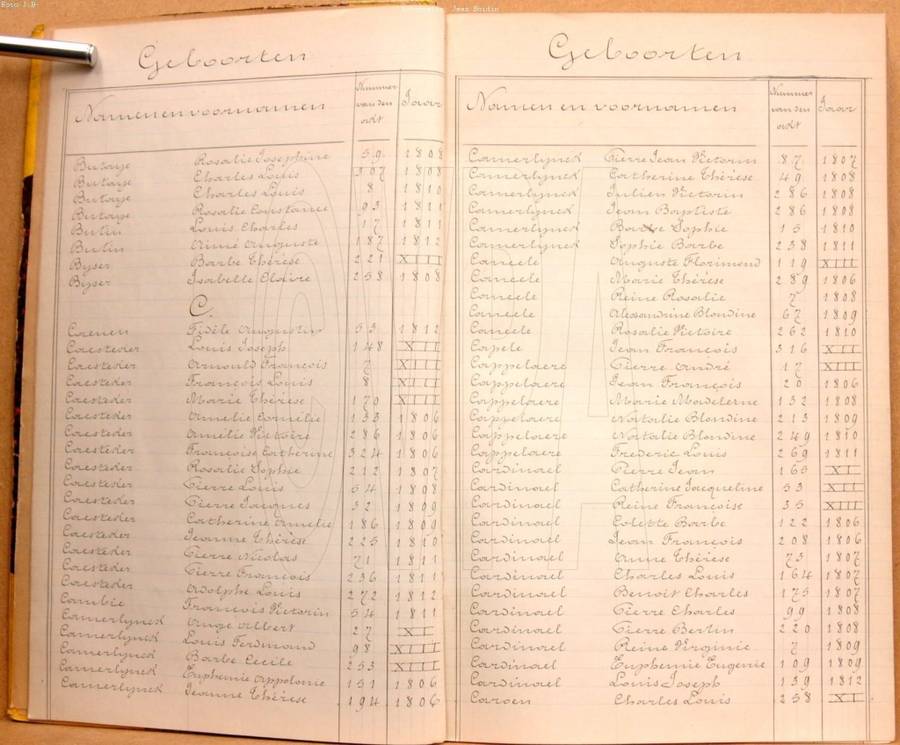 Foto J.D.
Jean Boutin
Geboorten
Namen en voornamen Nummer van den acht Jaar
Butaye Rosalie Josephine 59 1808
Butaye Charles Louis 307 1808
Butaye Charles Louis 8 1810
Butaye Rosalie Constance 93 1811
Butin Louis Charles 17 1811
Butin Aimé Auguste 187 1812
Byser Barbe Thérèse 221 XIII
Byser Isabelle Claire 258 1808
C.
Caenen Fidèle Augustin 53 1812
Caesteder Louis Joseph 148 XII
Caesteder Arnould François 7 XIII
Caesteder François Louis 8 XIII
Caesteder Marie Thérèse 170 XIII
Caesteder Amelie Cornélie 133 1806
Caesteder Amélie Victoire 286 1806
Caesteder Françoise Catherine 324 1806
Caesteder Rosalie Sophie 212 1807
Caesteder Pierre Louis 54 1808
Caesteder Pierre Jacques 32 1809
Caesteder Catherine Amelie 186 1809
Caesteder Jeanne Thérèse 225 1810
Caesteder Pierre Nicolas 71 1811
Caesteder Pierre François 236 1811
Caesteder Adolphe Louis 272 1812
Cambie François Victorin 54 1811
Camerlynck Ange Albert 27 XI
Camerlynck Louis Ferdinand 98 XIII
Camerlynck Barbe Cecile 253 XIII
Camerlynck Euphemie Appolonie 151 1806
Camerlynck Jeanne Thérèse 194 1806
Geboorten
Namen en voornamen Nummer van den acht Jaar
Camerlynck Pierre Jean Victorin 87 1807
Camerlynck Catherine Thérèse 49 1808
Camerlynck Julien Victorin 286 1808
Camerlynck Jean Baptiste 286 1808
Camerlynck Barbe Sophie 15 1810
Camerlynck Sophie Barbe 238 1811
Caneele Auguste Florimond 119 XIII
Caneele Marie Thérèse 289 1806
Caneele Reine Rosalie 7 1808
Caneele Alexandrine Blondine 67 1809
Caneele Rosalie Victoire 262 1810
Capele Jean François 316 XII
Cappelaere Pierre André 17 XIII
Cappelaere Jean François 20 1806
Cappelaere Marie Madelerne 132 1808
Cappelaere Natalie Blondine 213 1809
Cappelaere Natalie Blondine 249 1810
Cappelaere Frederic Louis 269 1811
Cardinael Pierre Jean 165 XI
Cardinael Catherine Jacqueline 53 XII
Cardinael Reine Françoise 35 XIII
Cardinael Colette Barbe 122 1806
Cardinael Jean François 208 1806
Cardinael Anne Thérèse 73 1807
Cardinael Charles Louis 164 1807
Cardinael Benoit Charles 175 1807
Cardinael Pierre Charles 99 1808
Cardinael Pierre Bertin 220 1808
Cardinael Reine Virginie 7 1809
Cardinael Euphemie Eugenie 109 1809
Cardinael Louis Joseph 139 1812
Caroen Charles Louis 258 XI